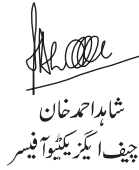 شاہد احمد خان
چیف ایگزیکٹیو آفیسر